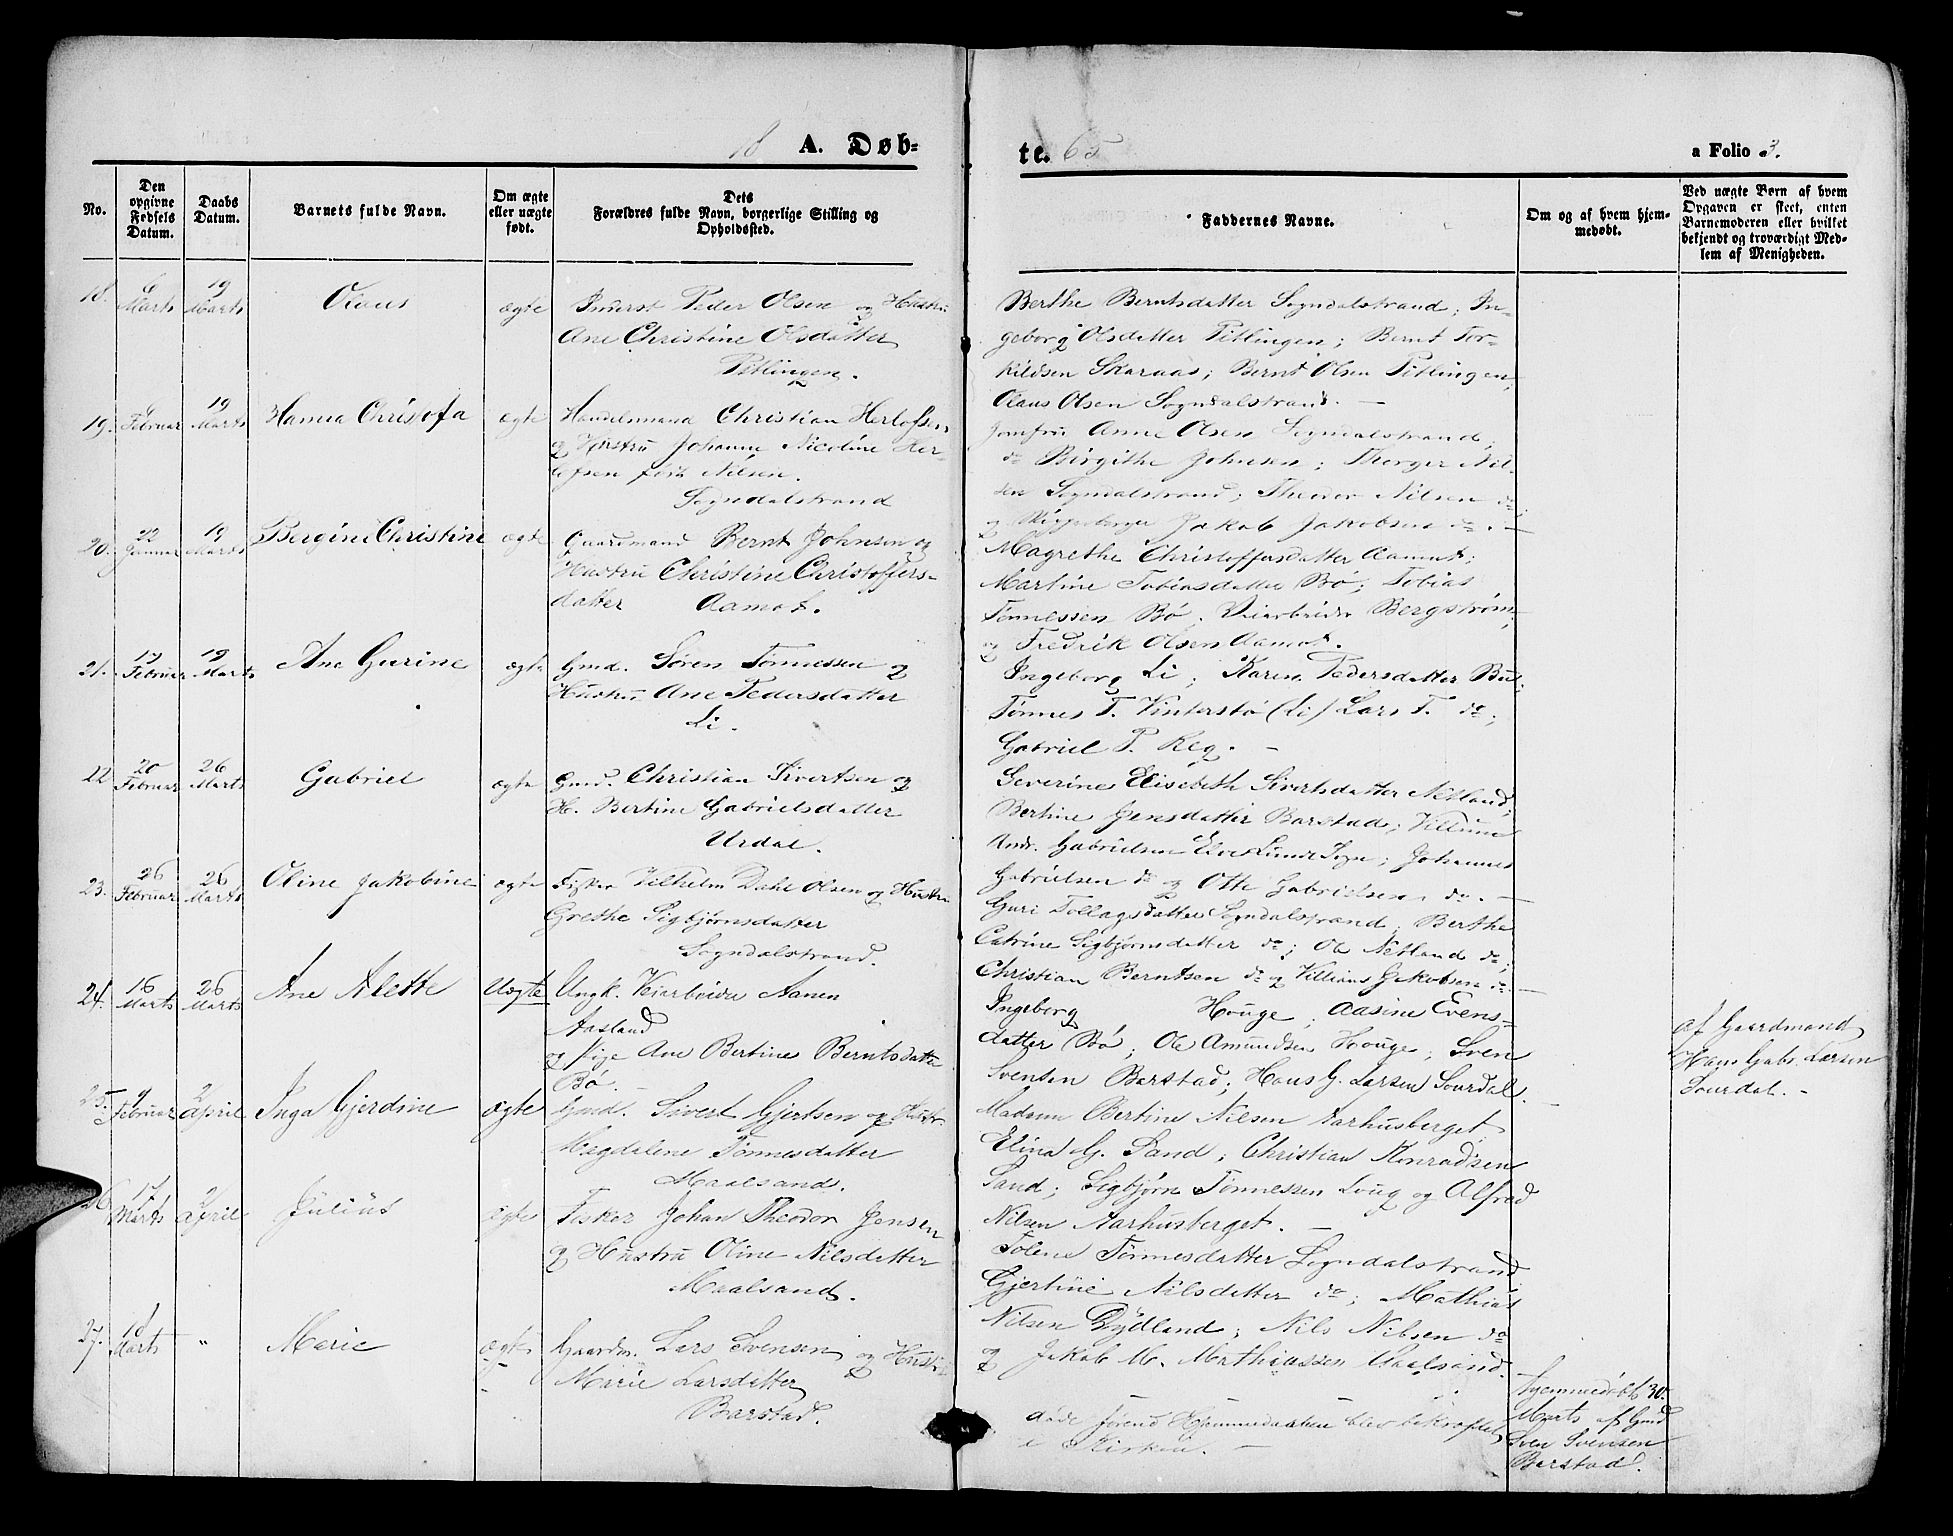 18 A. Døb-
No.
Den opgivne Fødsels Datum.
Daabs Datum.
Barnets fulde Navn.
Om ægte eller uægte født.
Dets Forældres fulde Navn, borgerlige Stilling og Opholdssted.
18.
6 Marts
19 Marts
Olaus
ægte
Peder Olsen og Hustru
Ane Christine Olsdatter
Pitlingen.
19.
Februar
19 Marts
Hanna Christofa
ægte
Handelsmand Christian Herlofsen
og Hustru Johanne Nicoline Her-
lofsen født Nilsen.
Sogndalstrand
20.
22 Januar
19 Marts
Bergine Christine
ægte
Gaardmand Bernt Johnsen og
Hustru Christine Christoffers-
datter Aamot.
21.
19 Februar
19 Marts
Ane Gurine
ægte
Gmd. Sören Tönnessen og
Hustru Ane Pedersdatter
Li.
22
20 Februar
26 Marts
Gabriel
ægte
Gmd. Christian Sivertsen og
H. Bertine Gabrielsdatter
Urdal.
23.
26 Februar
26 Marts
Oline Jakobine
ægte
Fisker Vilhelm Dahl Olsen og Hustru
Grethe Sigbjørnsdatter
Sogndalstrand.
24.
16 Marts
26 Marts
Ane Alette
Uægte
Ungk. Veiarbeider Aanen
Aasland
og Pige Ane Bertine Berntsdatter
Bö.
25.
9 Februar
2 April
Inga Gjerdine
ægte
Gmd. Sivert Gjertsen og Hustr.
Magdalene Tönnesdatter
Maalsand.
26
17 Marts
2 April
Julius
ægte
Fisker Johan Theodor Jensen
og Hustru Oline Nilsdatter
Maalsand.
27.
18 Marts
"
Marie
ægte
Gaardm. Lars Svensen og Hustru
Marie Larsdatter
Barstad.
te. 65
a Folio 3.
Faddernes Navne.
Om og af hvem hjem-
medøbt.
Ved uægte Børn af hvem
Opgaven er skeet, enten
Barnemoderen eller hvilket
bekjendt og troværdigt Med-
lem af Menigheden.
Berthe Berntsdatter Sogndalstrand; In-
geborg Olsdatter Pitlingen; Bernt Tor-
kildsen Skaraas; Bernt Olsen Pitlingen,
Olaus Olsen Sogndalstrand. —
Jomfru Anne Olsen Sogndalstrand,
do Birgithe Johnsen; Nil-
sen Sogndalstrand; Theodor Nilsen do
og Jakob Jakobsen do. —
Magrethe Christoffersdatter Aamot;
Martine Tobiasdatter Bö; Tobias
Tönnessen Bö; Veiarbeider Bergström;
og Fredrik Olsen Aamot.
Ingeborg Li; Karen Pedersdatter
Tönnes T. Vinterstö (Li) Lars T. do;
Gabriel P. —
Severine Elisebeth Sivertsdatter Netland;
Bertine Jensdatter Barstad;
Andr. Gabrielsen Johannes
Gabrielsen do og Otte Gabrielsen do. —
Guri Tollagsdatter Sogndalstrand; Berthe
Catrine Sigbjörnsdatter do; Ole Netland do;
Christian Berntsen do og Villiam Jakobsen do. —
Ingeborg Houge; Aasine Evens-
datter Bö; Ole Amundsen Houge; Sven
Svensen Barstad; Hans G. Larsen Sourdal.
Madam Bertine Nilsen Aarhusberget
Elina G. Sand; Christian Konradsen
Sand; Sigbjörn Tönnessen og Alfred
Nilsen Aarhusberget. —
Tolene Tönnesdatter Sogndalstrand
Gjertine Nilsdatter do; Mathias
Nilsen Dydland; Nils Nilsen do
og Jakob M. Mathiassen Maalsand.
døde förend Hjemmedaaben blev bekræftet
i Kirken. —
Hjemmedöbt 30.
Marts af Gmd
Sven Svensen
Barstad.
af Gaardmand
Hans Gabr. Larsen
Sourdal. -